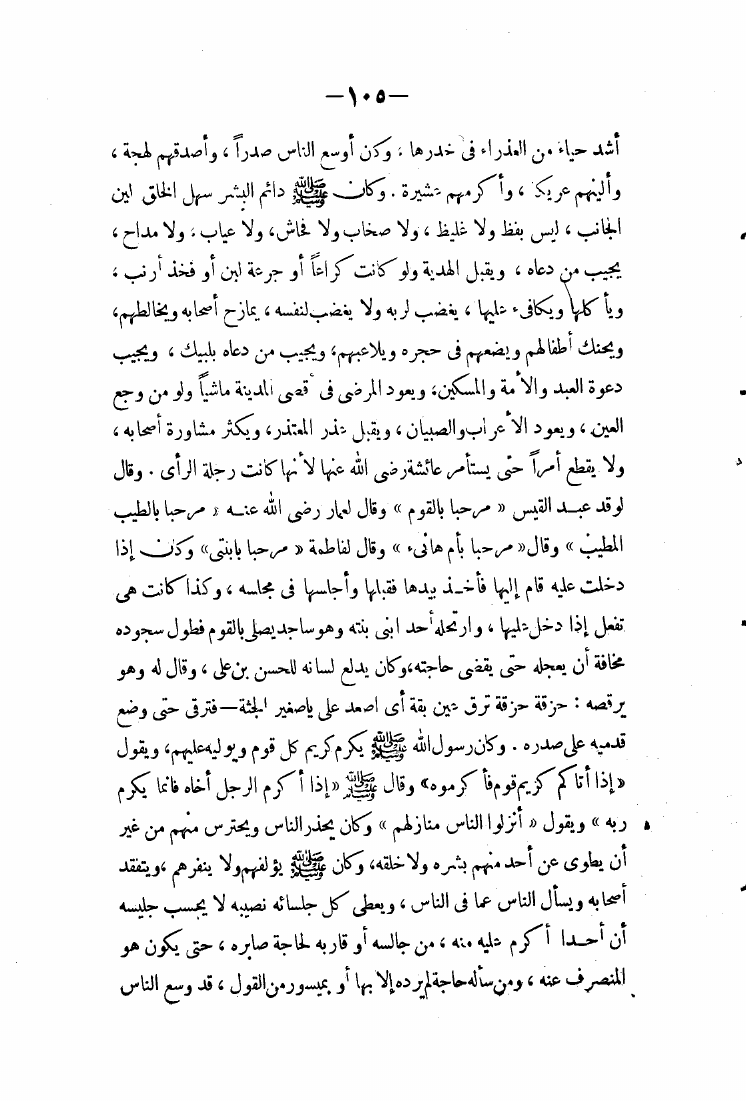 —١٠٥—
أشد حياء من العذراء فى خدرها ، وكان أوسع الناس صدراً ، وأصدقهم لهجة ،
وألينهم عريكة ، وأكرمهم عشيرة . وكان ﷺ دائم البشر سهل الخلق لين
الجانب ، ليس بفظ ولا غليظ ، ولا صخاب ولا فحاش، ولا عياب ، ولا مداح ،
يجيب من دعاه ، ويقبل الهدية ولو كانت كراعاً أو جرعة لبن أو فخذ أرنب ،
ويأكلها ويكافىء عليها ، يغضب لربه ولا يغضب لنفسه ، يمازح أصحابه ويخالطهم،
ويحنك أطفالهم ويضعهم فى حجره ويلاعبهم، ويجيب من دعاه بلبيك ، ويجيب
دعوة العبد والأمة والمسكين، ويعود المرضى فى أقصى المدينة ماشياً ولو من وجع
العين ، ويعود الأعراب والصبيان ، ويقبل عذر المعتذر، ويكثر مشاورة أصحابه ،
ولا يقطع أمراً حتى يستأمر عائشة رضى الله عنها لأنها كانت رجلة الرأى . وقال
لوفد عبد القيس « مرحبا بالقوم » وقال لعمار رضى الله عنه « مرحبا بالطيب
المطيب » وقال « مرحبا بأم هانىء » وقال لفاطمة « مرحبا بابنتى» وكان إذا
دخلت عليه قام إليها فأخذ بيدها فقبلها وأجلسها فى مجلسه ، وكذا كانت هى
تفعل إذا دخل عليها ، وارتحله أحد ابنى بنته وهو ساجد يصلى بالقوم فطول سجوده
مخافة أن يعجله حتى يقضى حاجته، وكان يدلع لسانه للحسن بن على ، وقال له وهو
يرقصه : حزقة حزقة ترق عين بقة أى اصعد على ياصغير الجثة — فترقى حتى وضع
قدميه على صدره . وكان رسول الله ﷺ يكرم كريم كل قوم ويوليه عليهم، ويقول
«إذا أتاكم كريم قوم فأكرموه» وقال ﷺ «إذا أكرم الرجل أخاه فانما يكرم
ربه » ويقول « أنزلوا الناس منازلهم » وكان يحذر الناس ويحترس منهم من غير
أن يطوى عن أحد منهم بشره ولا خلقه، وكان ﷺ يؤلفهم ولا ينفرهم ، ويتفقد
أصحابه ويسأل الناس عما فى الناس ، ويعطى كل جلسائه نصيبه لا يحسب جليسه
أن أحدا أكرم عليه منه ، من جالسه أو قاربه لحاجة صابره ، حتى يكون هو
المنصرف عنه ، ومن سأله حاجة لم يرده إلا بها أو بميسور من القول ، قد وسع الناس